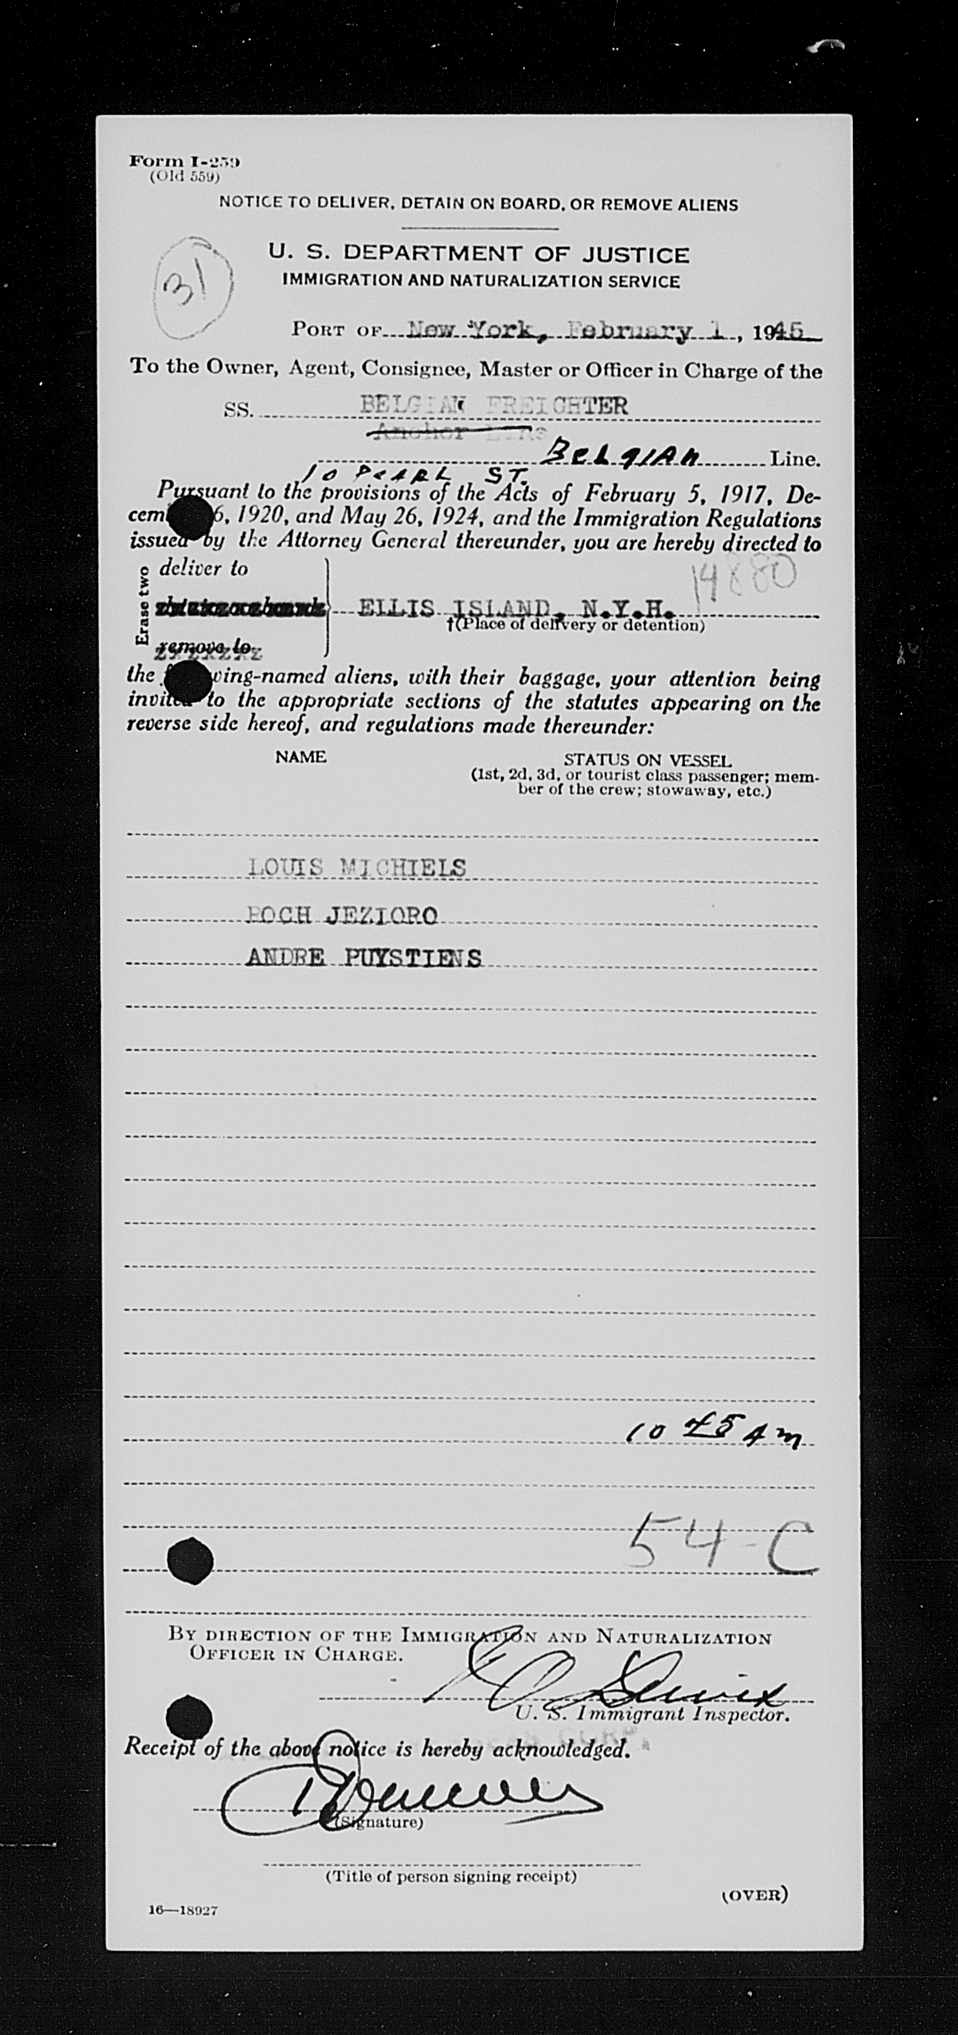 Form I-259
(Old 559)
NOTICE TO DELIVER, DETAIN ON BOARD, OR REMOVE ALIENS
31
U. S. DEPARTMENT OF JUSTICE
IMMIGRATION AND NATURALIZATION SERVICE
PORT OF New York, February 1, 1945
To the Owner, Agent, Consignee, Master or Officer in Charge of the
SS. BELGIAN FREIGHTER
Anchor Line
BELGIAN Line.
10 PEARL ST.
Pursuant to the provisions of the Acts of February 5, 1917, De-
cem 6, 1920, and May 26, 1924, and the Immigration Regulations
issued by the Attorney General thereunder, you are hereby directed to
Erase two
deliver to
14880
ELLIS ISLAND, N.Y.H.
†(Place of delivery or detention)
remove to
the wing-named aliens, with their baggage, your attention being
invited to the appropriate sections of the statutes appearing on the
reverse side hereof, and regulations made thereunder:
NAME STATUS ON VESSEL
(1st, 2d, 3d, or tourist class passenger; mem-
ber of the crew; stowaway, etc.)
LOUIS MICHIELS
ROCH JEZIORO
ANDRE PUYSTIENS
10 45 AM
54-C
BY DIRECTION OF THE IMMIGRATION AND NATURALIZATION
OFFICER IN CHARGE.
U. S. Immigrant Inspector.
CORP.
Receipt of the above notice is hereby acknowledged.
(Signature)
(Title of person signing receipt)
(OVER)
16—18927